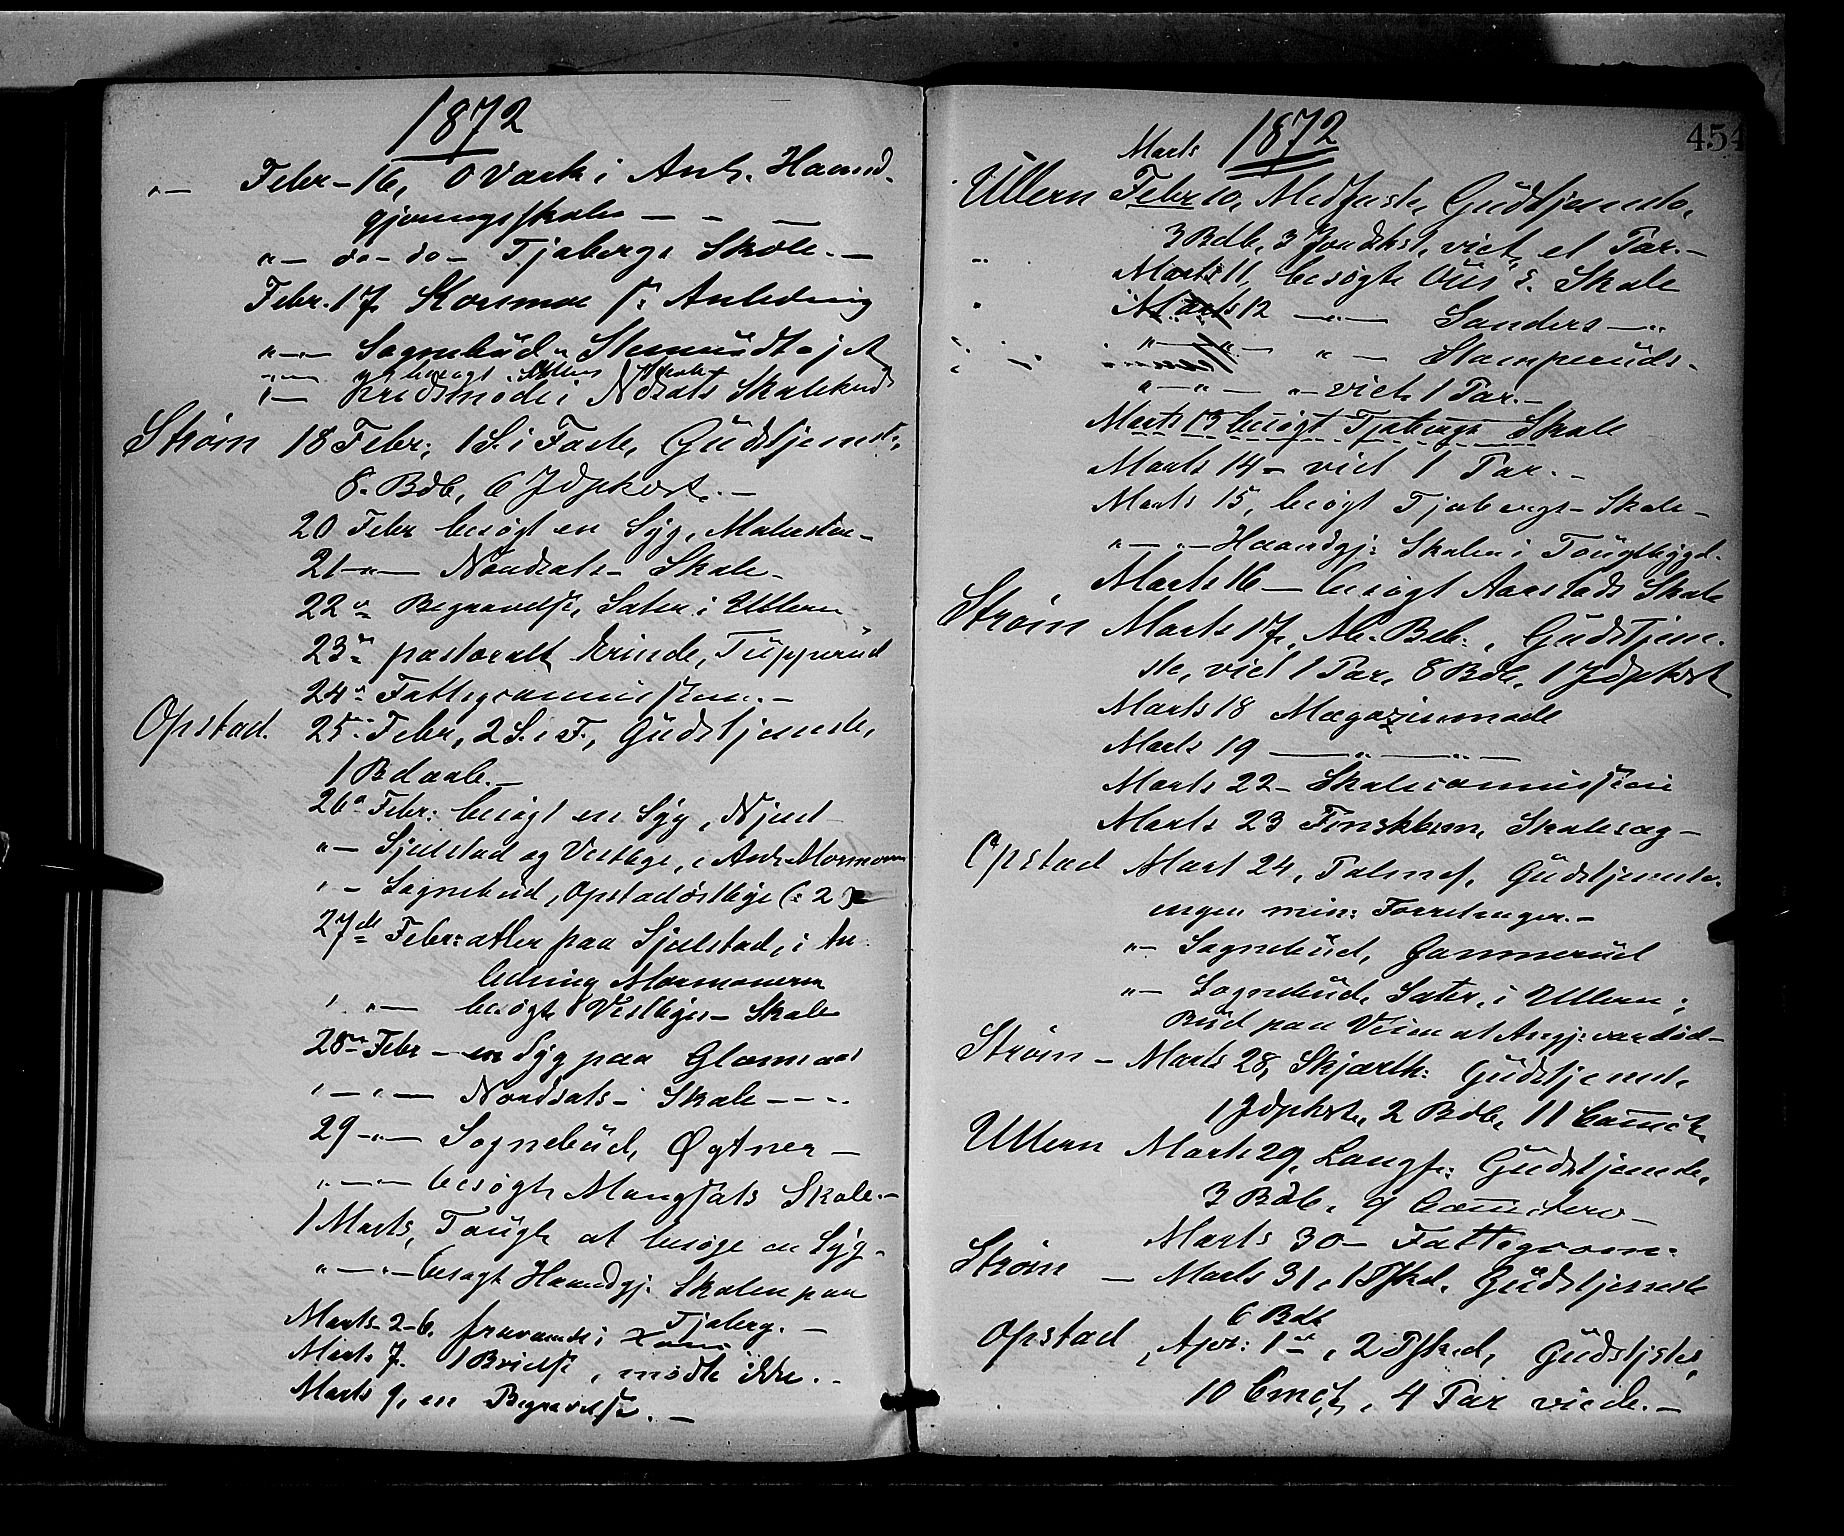 1872
"— Febr – 16, O Værk i Anl. Haand-
gjerningsskolen — - —
"— do – do – Tjabergs Skole. —
Febr. 17. Korsmoe Anledning
"—"— Sognebud
"—"— besøgt Skole
"— Kredsmøde i Nordsats Skolekreds
Strøm 18 Febr; 1 S. i Faste, Gudstjeneste,
8. Bdb, 6 Jdpkost. –
20 Febr besøgt en Syg,
21 –"— Nordsats – Skole –
22 " Begravelse, Sæter i Ullern
23 " pastoralt Erinde, Tupperud
24 " Fattigcommission. –
Opstad. 25 Febr, 2 S. i F., Gudstjeneste,
1 Bdaab. –
26 " Febr: besøgt en Syg,
"— Sjulstad og Vestbye, i Anl. Mormoner
"— Sognebud, Opstadøstbye (: 2 :)
27de Febr: atter paa Sjulstad, i An-
ledning Mormonerne
" "— besøgte Vestbyes – Skole
28 Febr – en Syg paa Glommaas
"—"— Nordsats – Skole – – –
29 –"— Sognebud, Øgtner –
"—"— besøgte Mangsats Skole. –
1 Marts, Tougle at besøge en Syg –
"—"— besøgt Haandgj: Skolen paa
Tjaberg. –
Marts 2–6. fraværende i
Marts 7. 1 Brudev, mødte ikke. –
Marts 9, en Begravelse. –
1872
454
Marts
Ullern Febr 10, Midfaste, Gudstjeneste,
3 Bdb, 3 viet et Par. –
Marts 11, besøgte Ous's. Skole
Marts 12 —"— Sanders —"
"—"— "— Stamperuds –
"—"— "— viet 1 Par. –
Marts 13 besøgt Tjabergs Skole
Marts 14 – viet 1 Par. –
Marts 15, besøgt Tjabergs – Skole –
"—"— Haandgj: Skolen i Tougbygd.
Marts 16 – besøgt Aarstads Skole
Strøm Marts 17, M. Beb:, Gudstjene-
ste, viet 1 Par, 8 Bdb, 1 Jdpkost
Marts 18 Magazinmøde
Marts 19 —"—"—
Marts 22 – Skolecommission
Marts 23 Finskbøn, Skolesag –
Opstad Mart 24, Palmes, Gudstjeneste
ingen min: Forretninger. –
"— Sognebud, Gammerud
"— Sognebud, Sæter, i Ullern;
Bud paa Veien at Angj: var død –
Strøm – Marts 28, Skjærth: Gudstjeneste
1 Jdpkst, 2 Bdb, 11 Comct.
Ullern Marts 29, Langfr: Gudstjeneste,
3 Bdb, 9 Comctero –
Marts 30 – Fattigcom:
Strøm — Marts 31, 1 Pskd, Gudstjeneste
6 Bdb
Opstad, Apr: 1st, 2 Pskd, Gudstjste,
10 Cmct, 4 Par viede. –